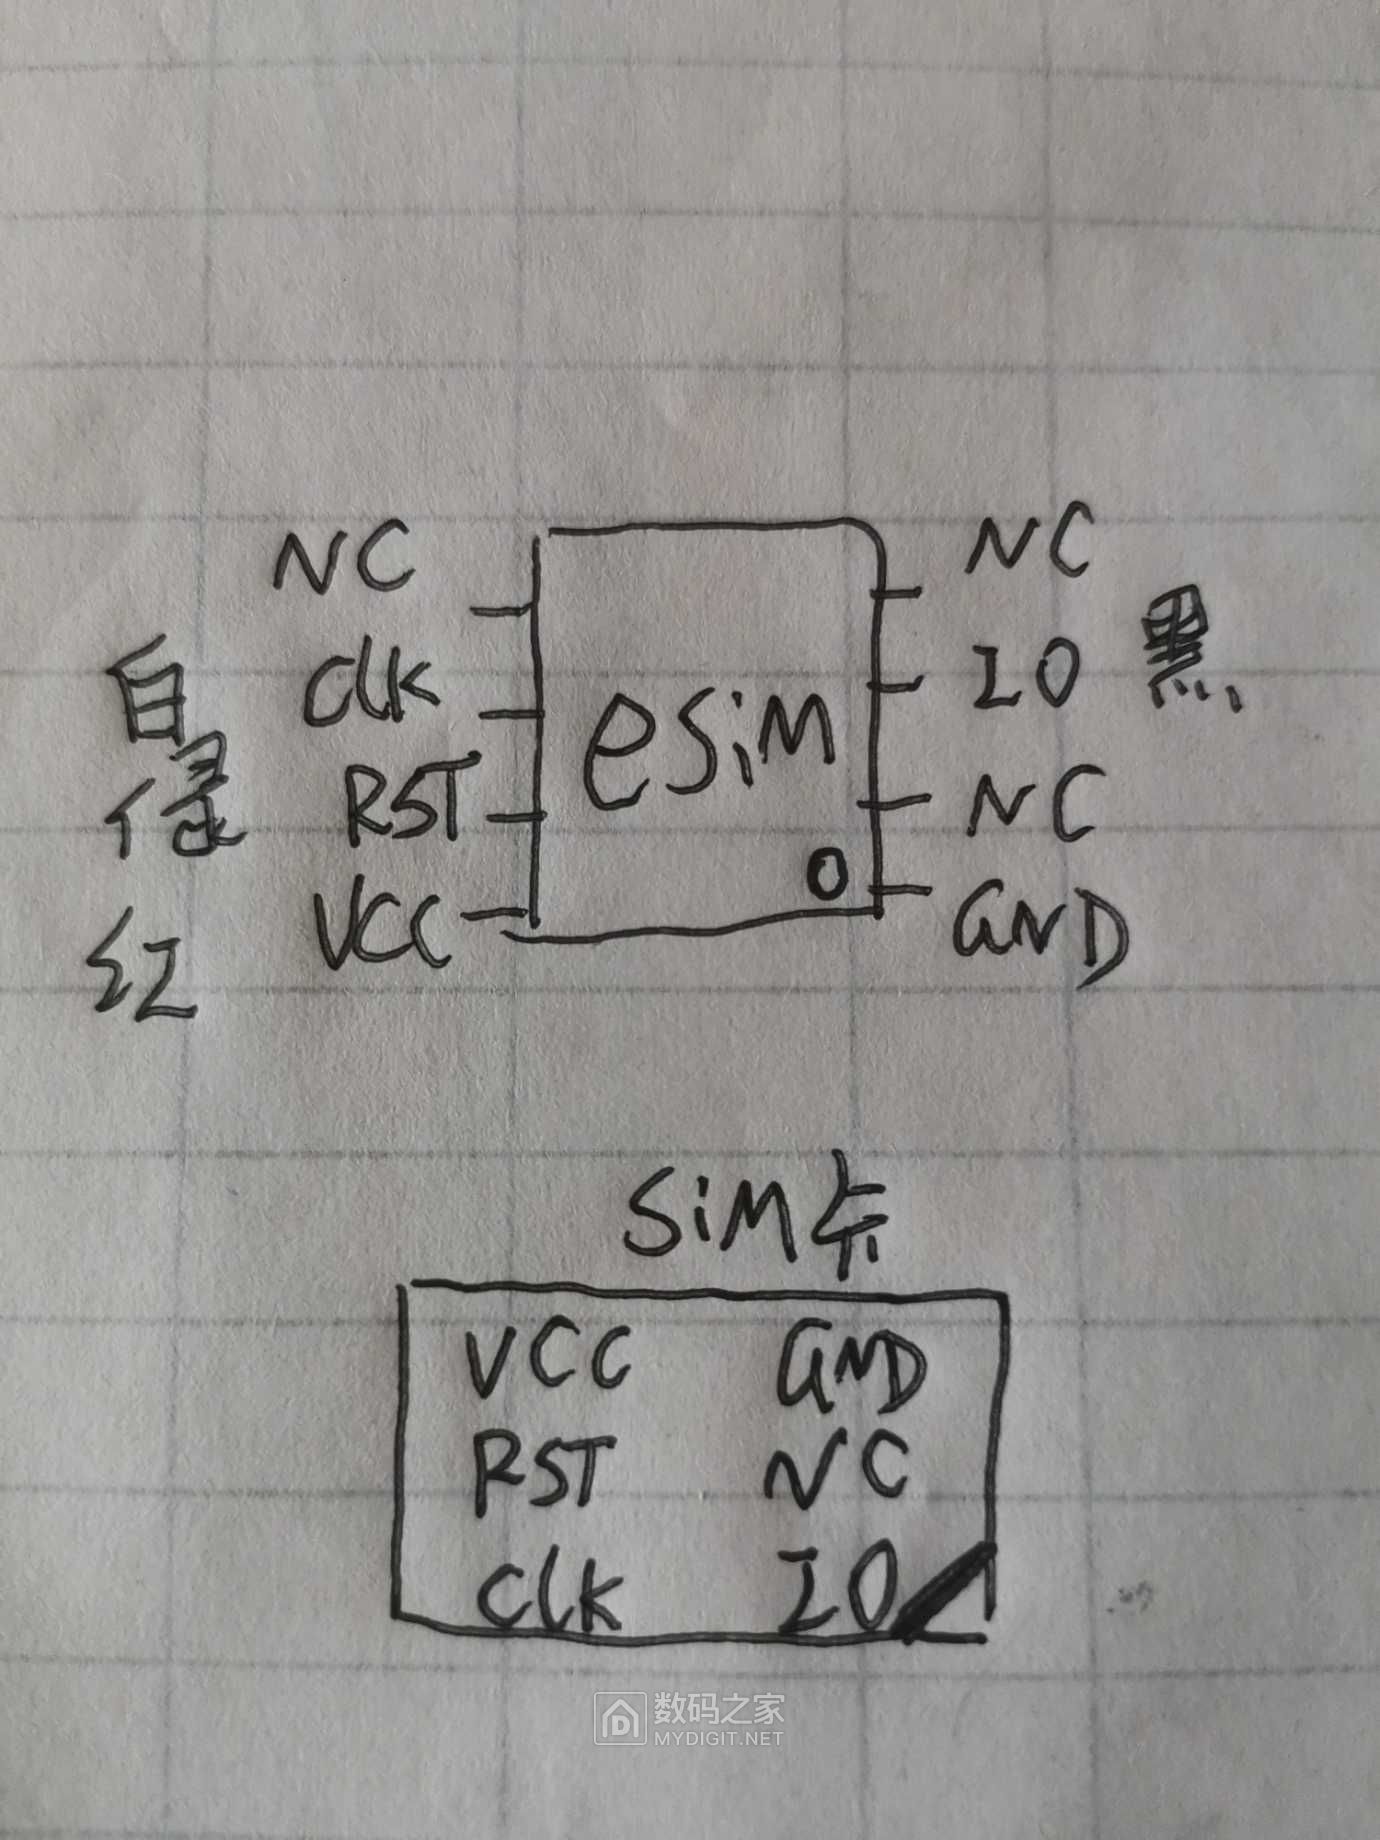 NC NC
白 CLK IO 黑
绿 RST eSiM NC
红 VCC O GND
SiM卡
VCC GND
RST NC
CLK IO
数码之家
MYDIGIT.NET